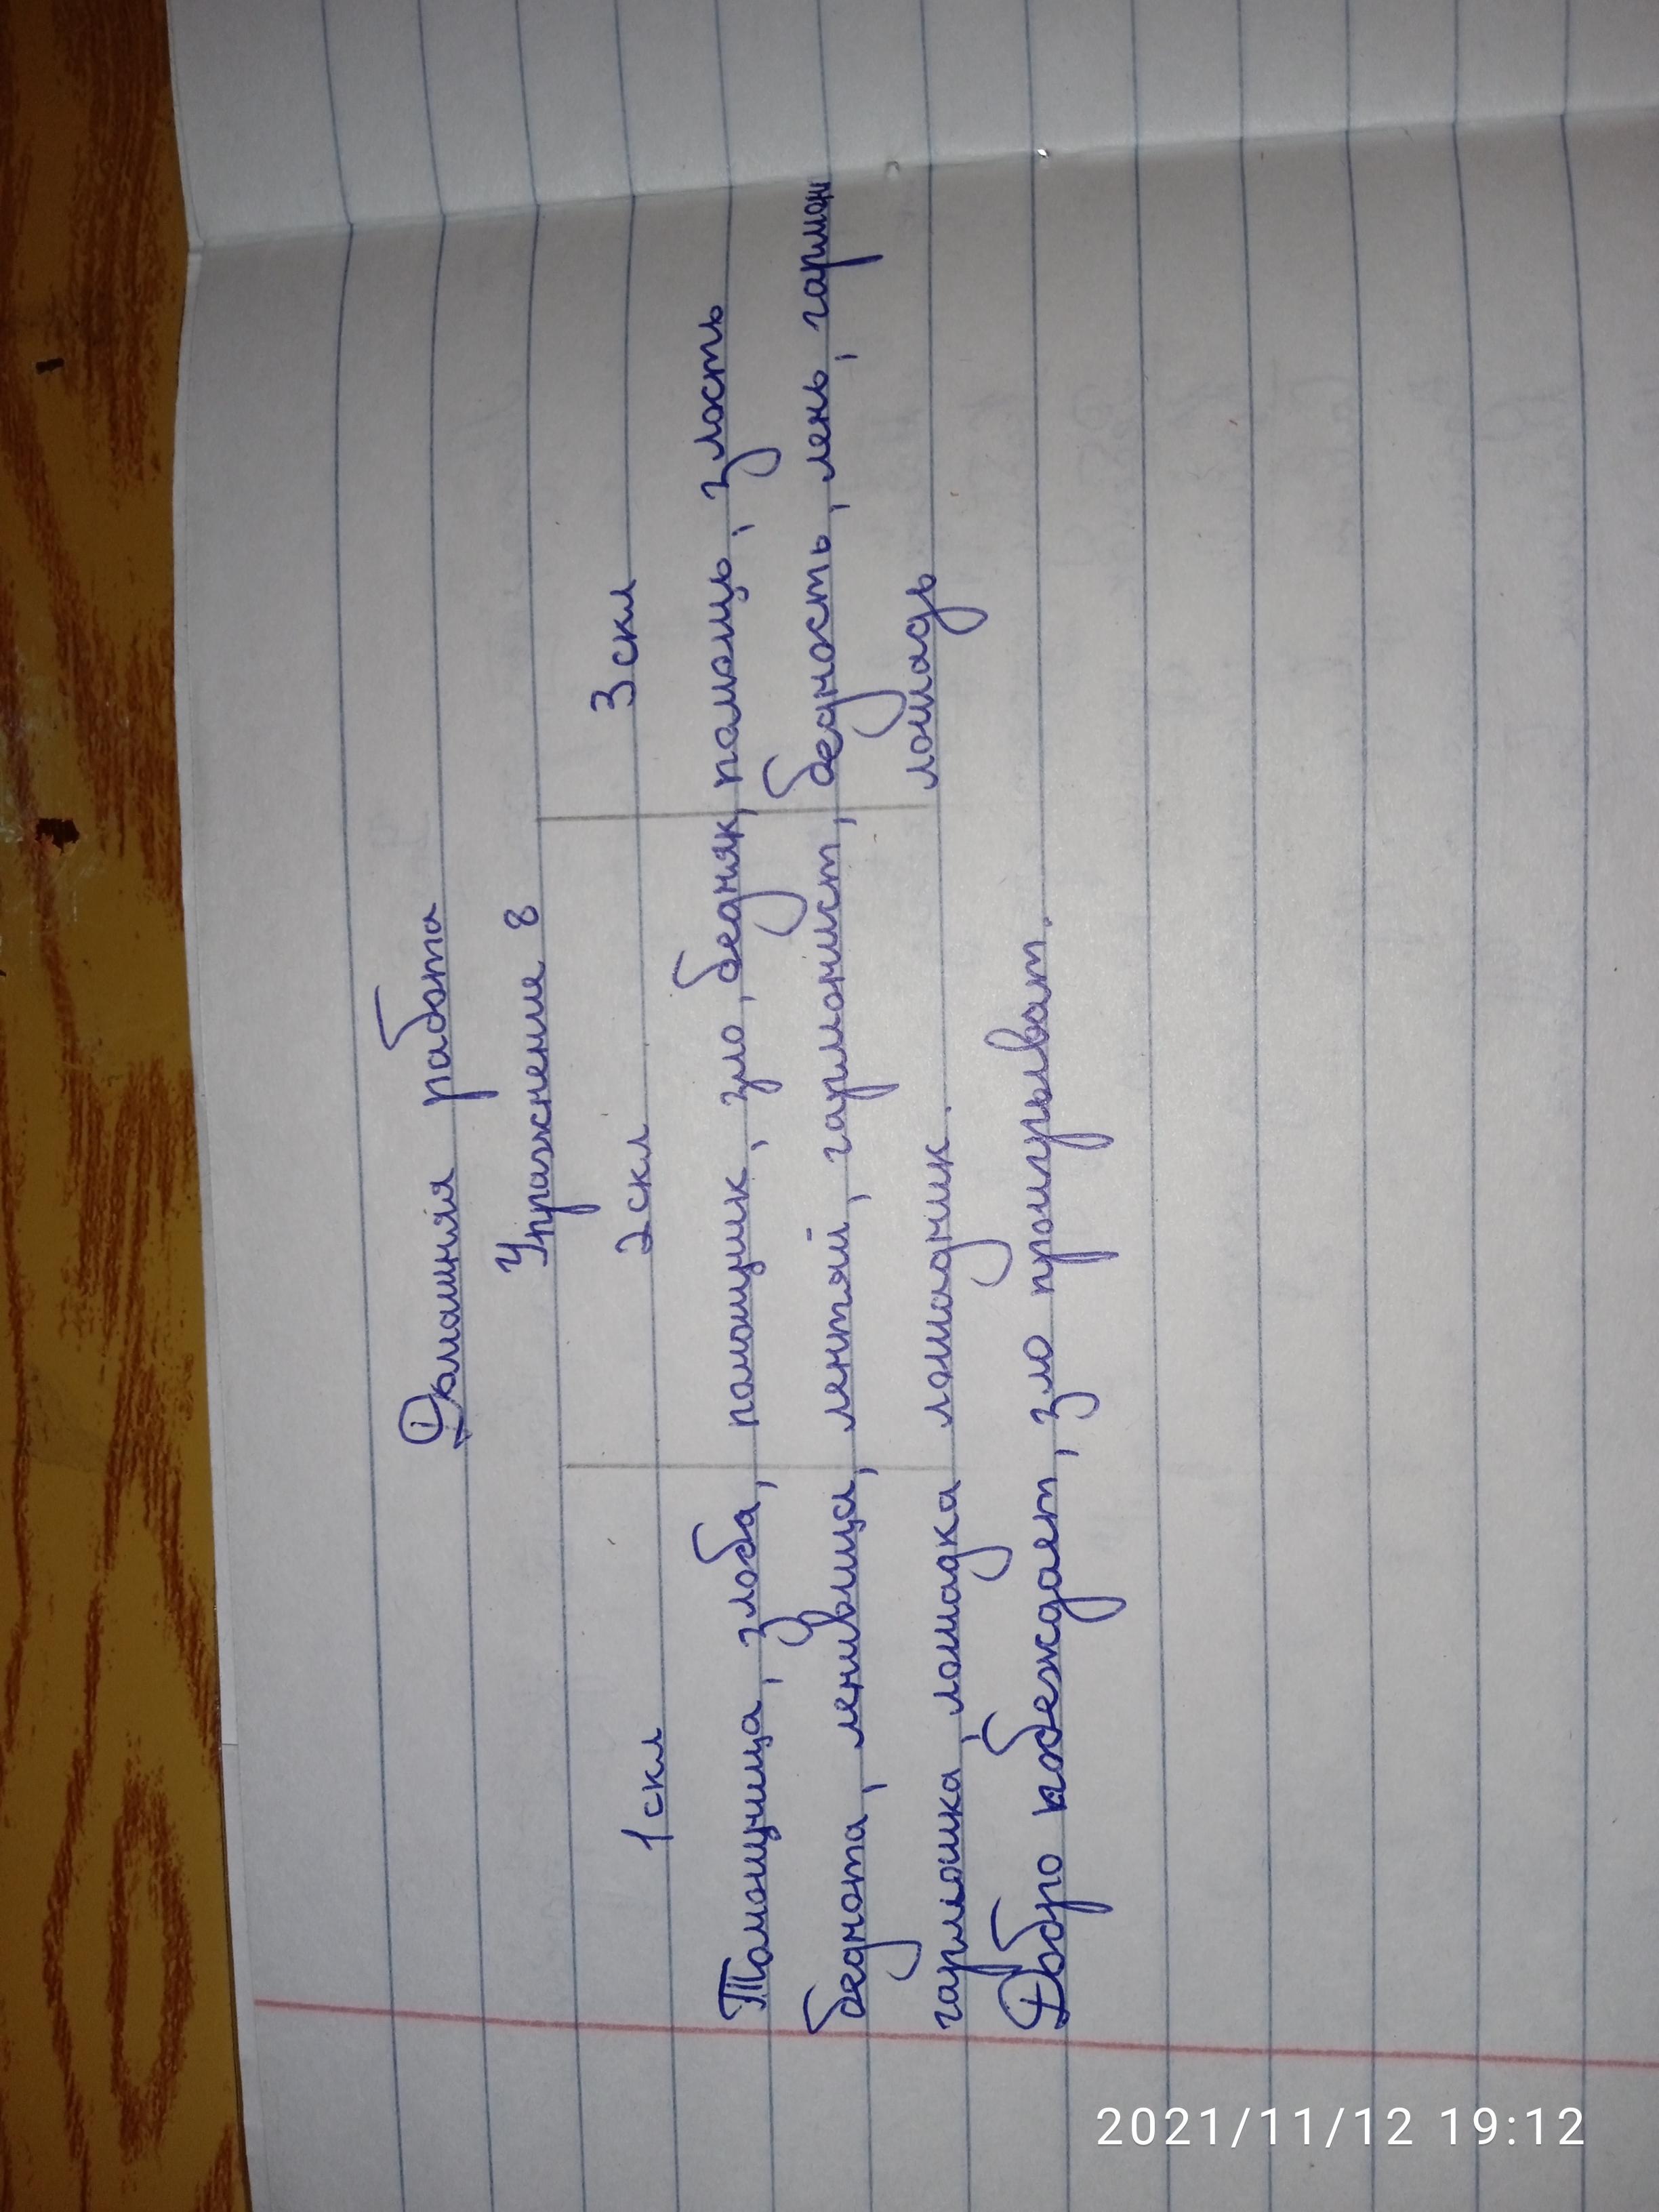 Домашняя работа
Упражнение 8
1 скл 2 скл 3 скл
Помощница, злоба, помощник, зло, бедняк, помощь, злость
беднота, ленивица, лентяй, гармонист, бедность, лень, гармонь
гармошка, лошадка лошадник. лошадь
Добро побеждает, зло проигрывает.
2021/11/12 19:12